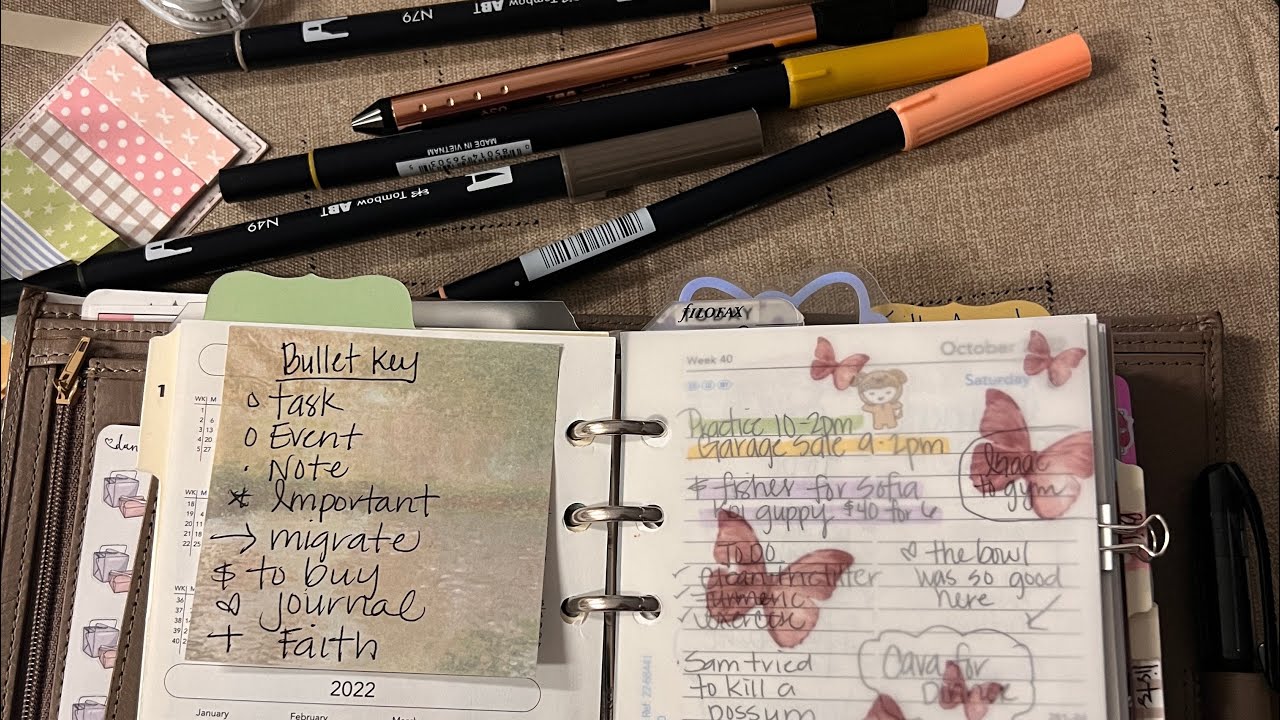 N79
Tombow ABT
MADE IN VIETNAM
Tombow ABT
N49
Bullet Key
Task
Event
Note
Important
migrate
$ to buy
journal
Faith
1
WK M
2022
January
February
filofax
Week 40
October
Saturday
Practice 10-2pm
Garage Sale 9-2pm
$ fisher for Sofia
Koi guppy $40 for 6
Isaac
to gym
To Do
Turmeric
exercise
the bowl
was so good
here
Sam tried
to kill a
possum
Cava for
Dinner
lists